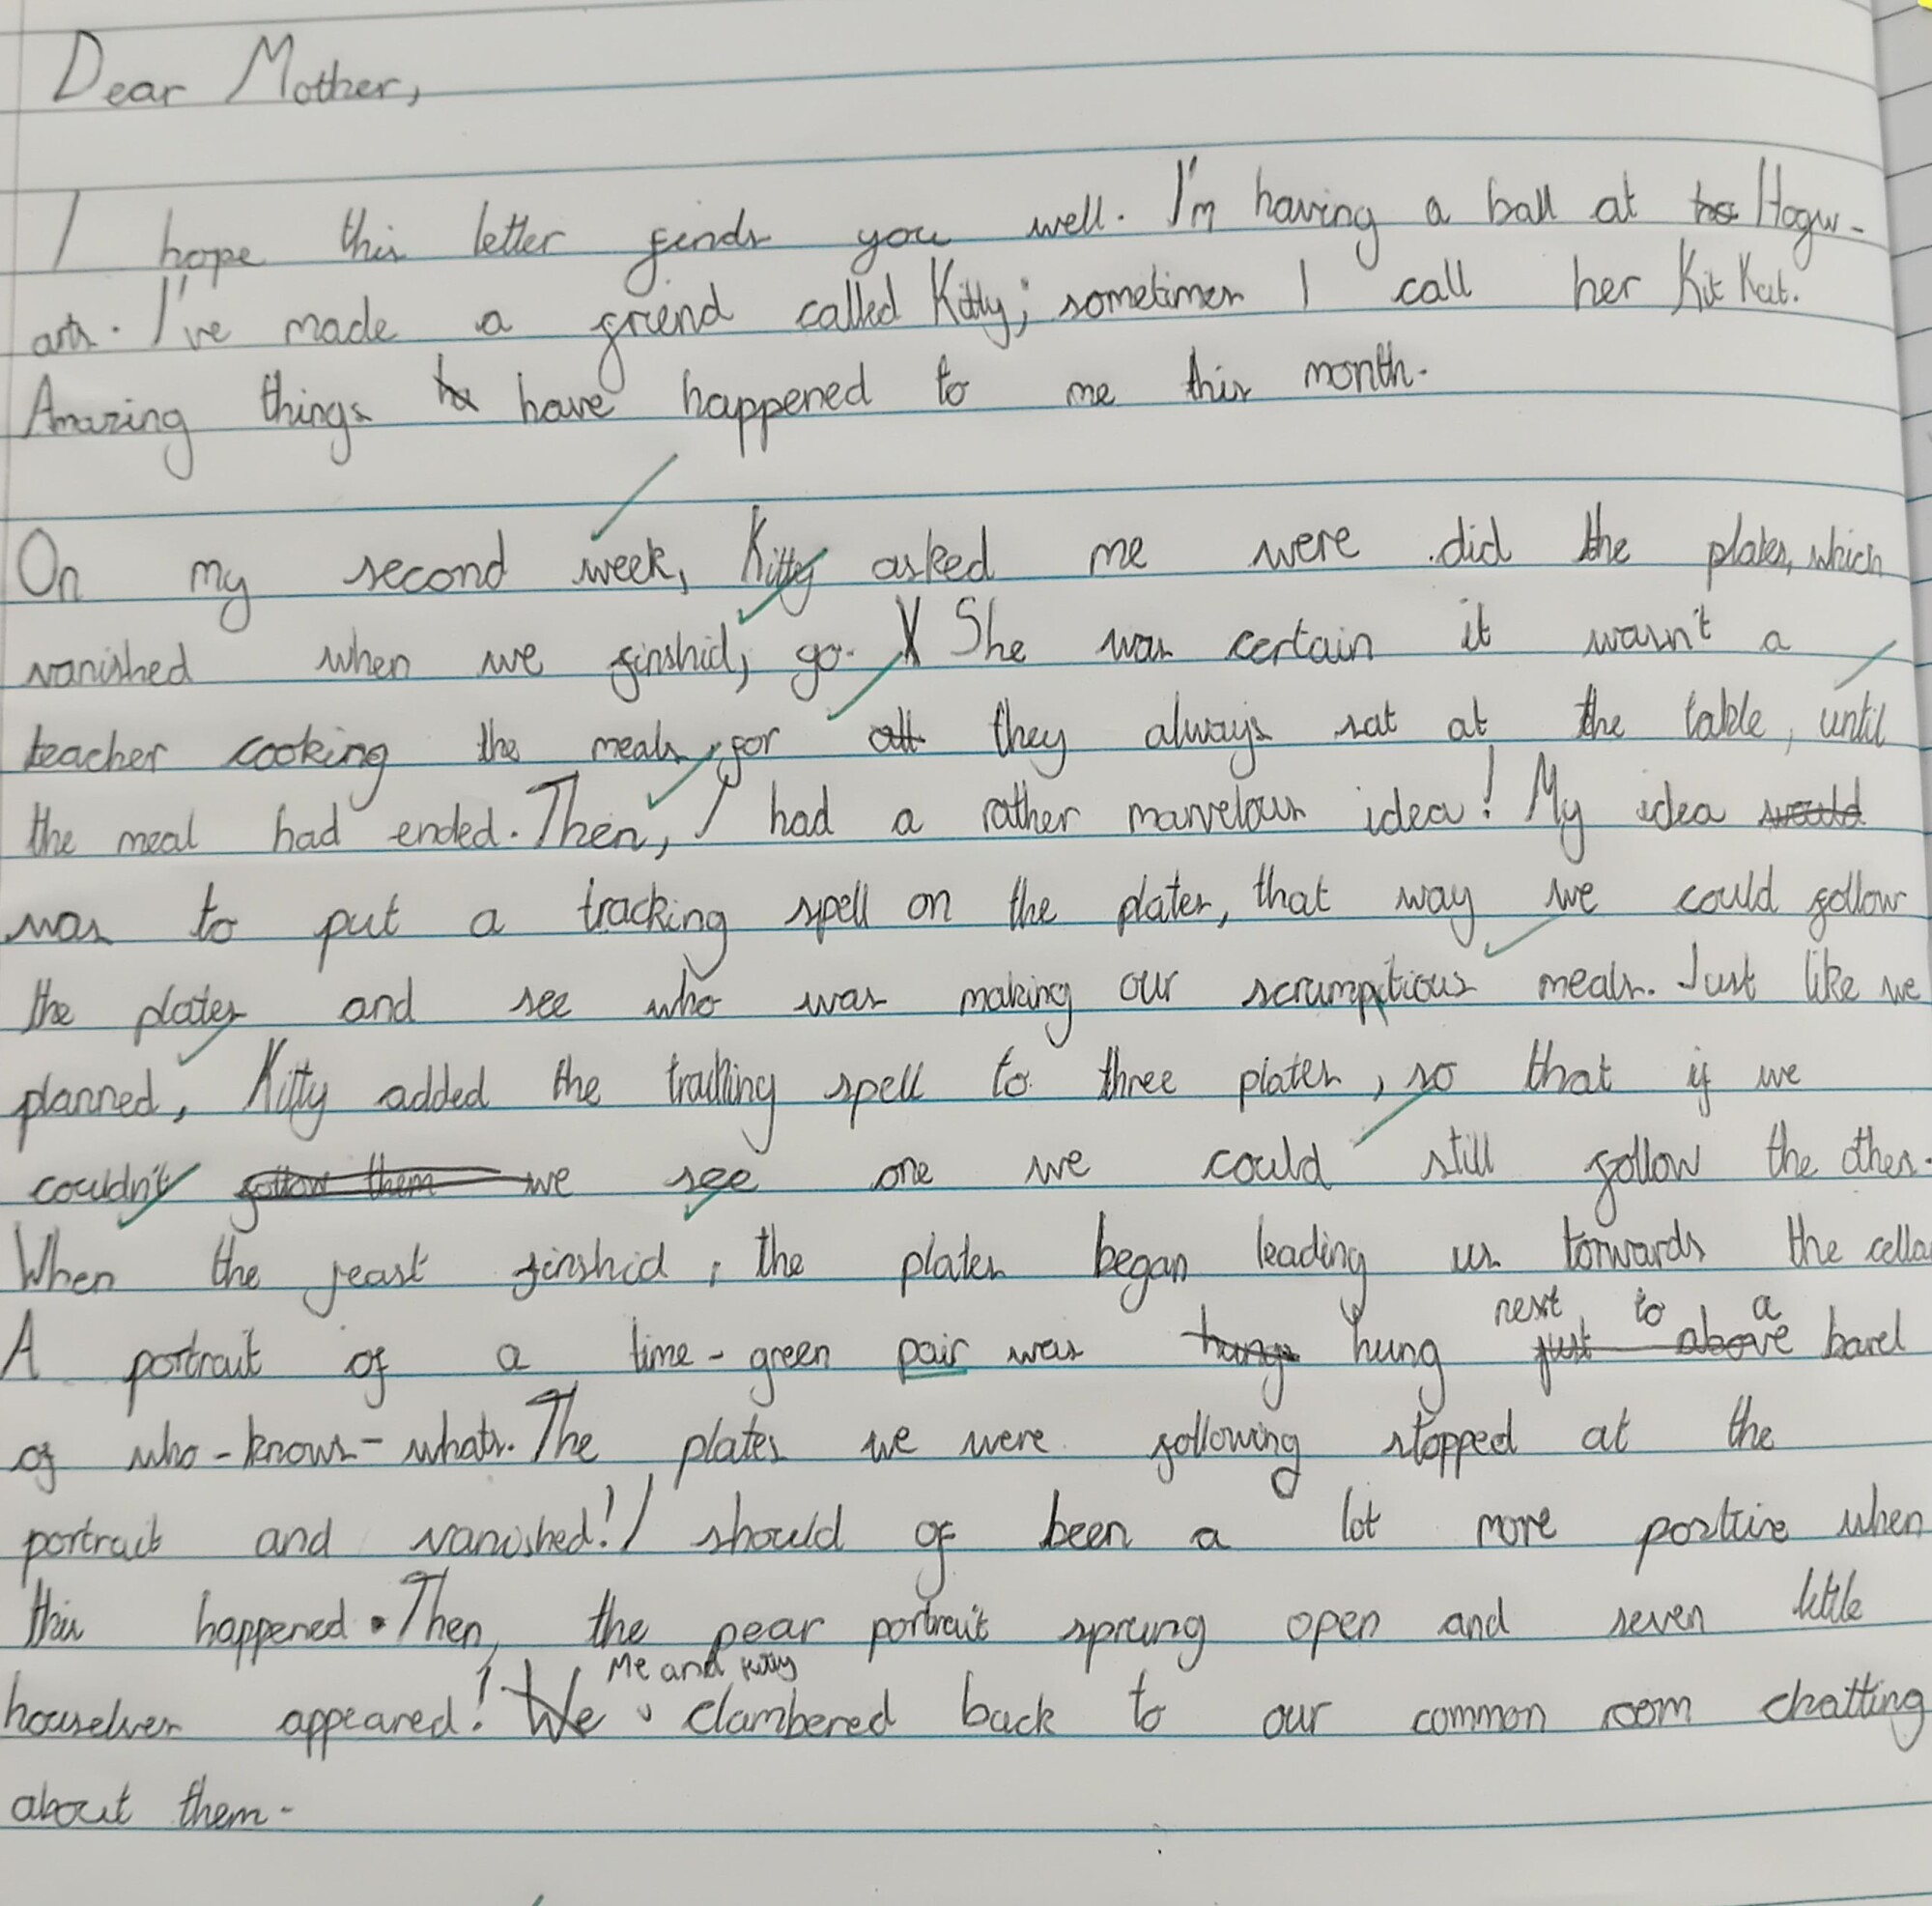 Dear Mother,
I hope this letter finds you well. I'm having a ball at Hogw-
arts. I've made a friend called Kitty; sometimes I call her Kit Kat.
Amazing things have happened to me this month.
On my second week, Kitty asked me were did the plates, which
vanished when we finshid, go. She was certain it wasn't a
teacher cooking the meals, for they always sat at the table, until
the meal had ended. Then, I had a rather marvelous idea! My idea
was to put a tracking spell on the plates, that way we could follow
the plates and see who was making our scrumptious meals. Just like we
planned, Kitty added the tracking spell to three plates, so that if we
couldn't we see one we could still follow the other.
When the feast finshid, the plates began leading us torwards the cella
A portrait of a lime-green pair was hung next to a barel
of who-knows-whats. The plates we were following stopped at the
portrait and vanished! I should of been a lot more positive when
this happened. Then, the pear portrait sprung open and seven little
houselves appeared! Me and Kitty clambered back to our common room chatting
about them.